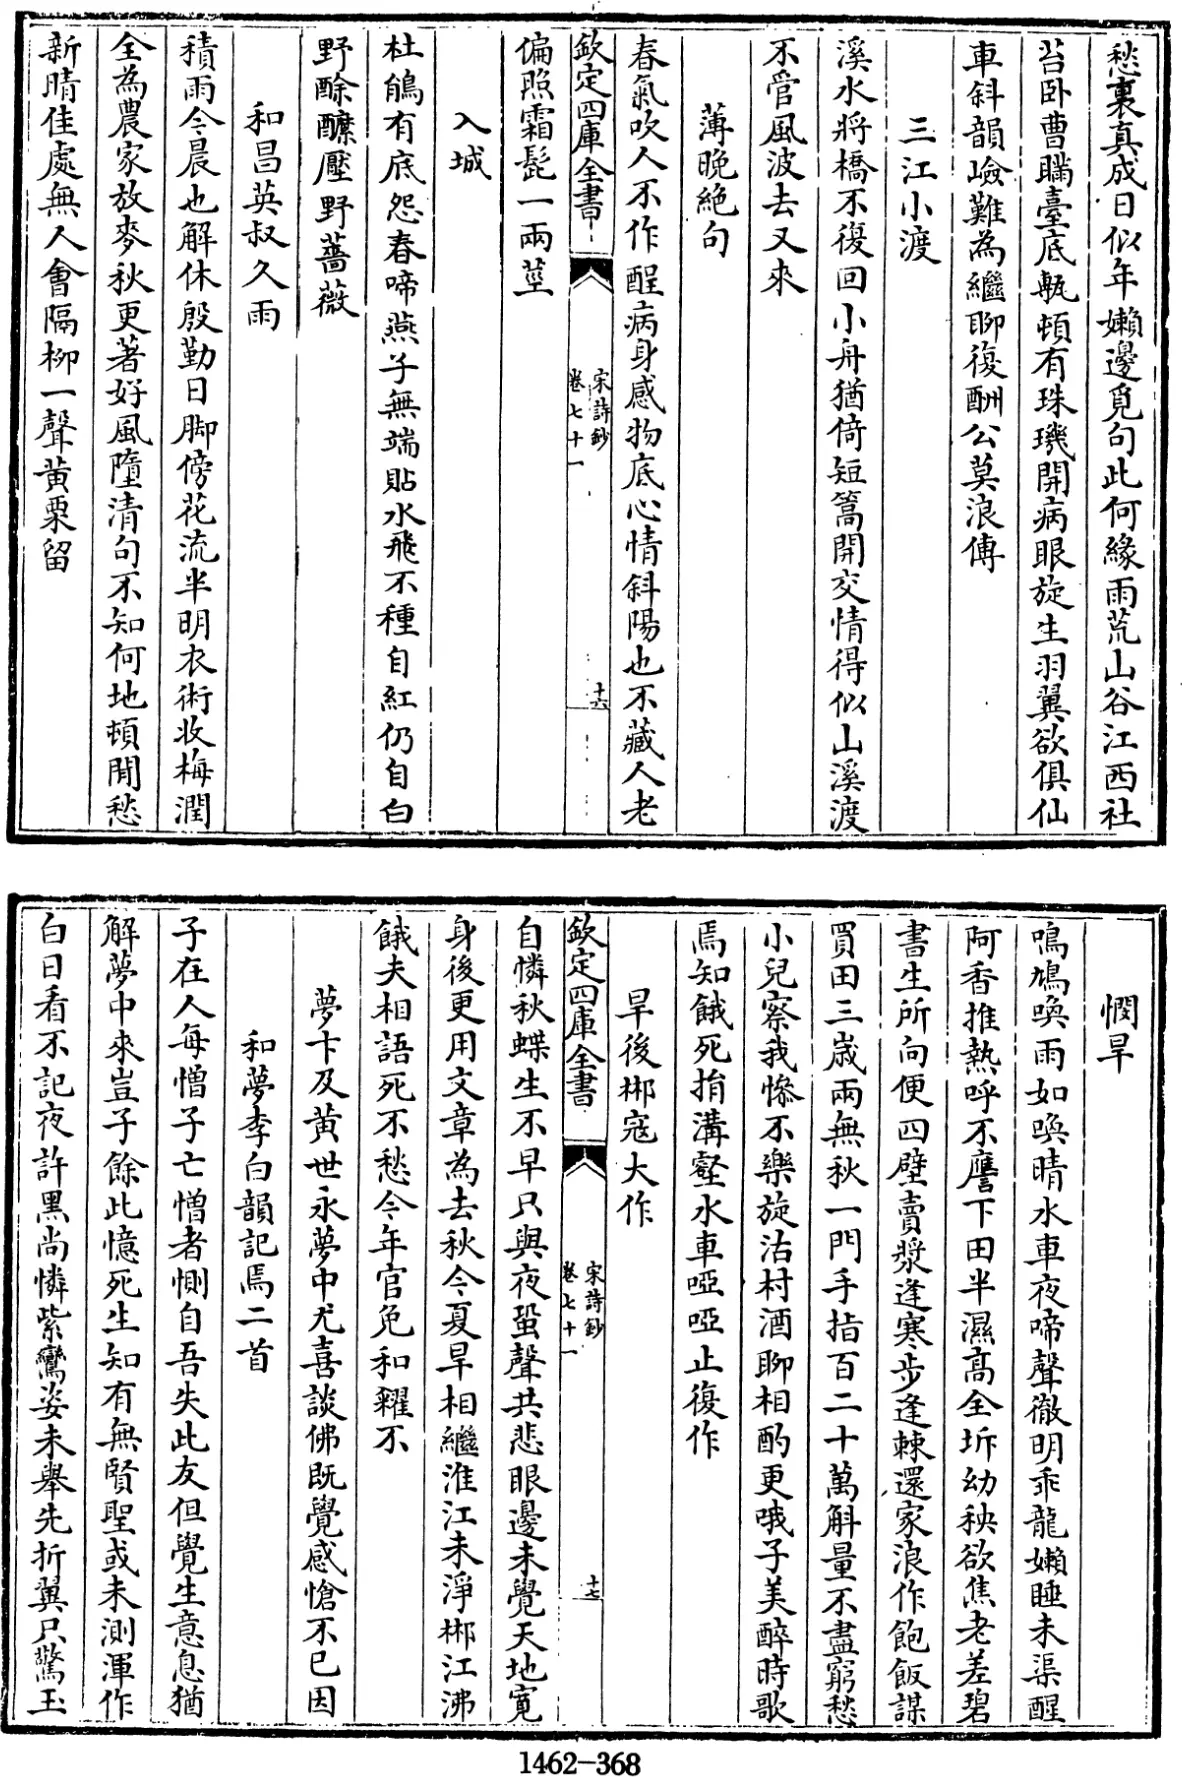 愁裏真成日似年嬾邊覓句此何緣雨荒山谷江西社
苔卧曹瞞臺底甎頓有珠璣開病眼旋生羽翼欲俱仙
車斜韻嶮難為繼聊復酬公莫浪傳
三江小渡
溪水將橋不復回小舟猶倚短篙開交情得似山溪渡
不管風波去又來
薄晚絶句
春氣吹人不作醒病身感物底心情斜陽也不藏人老
欽定四庫全書
宋詩鈔
卷七十一
十六
偏照霜髭一兩莖
入城
杜鵑有底怨春啼燕子無端貼水飛不種自紅仍自白
野酴醾壓野薔薇
和昌英叔久雨
積雨今晨也解休殷勤日脚傍花流半明衣術收梅潤
全為農家放麥秋更著好風墮清句不知何地頓閒愁
新晴佳處無人會隔柳一聲黄栗留
憫旱
鳴鳩喚雨如喚晴水車夜啼聲徹明乖龍嬾睡未渠醒
阿香推熱呼不譍下田半濕髙全坼幼秧欲焦老差碧
書生所向便四壁賣漿逢寒步逢棘還家浪作飽飯謀
買田三嵗兩無秋一門手指百二十萬斛量不盡窮愁
小兒察我慘不樂旋沽村酒聊相酌更哦子美醉時歌
焉知餓死填溝壑水車啞啞止復作
旱後郴寇大作
自憐秋蝶生不早只與夜蛩聲共悲眼邊未覺天地寛
欽定四庫全書
宋詩鈔
卷七十一
十七
身後更用文章為去秋今夏旱相繼淮江未淨郴江沸
餓夫相語死不愁今年官免和糴不
夢卞及黄世永夢中尤喜談佛既覺感愴不已因
和夢李白韻記焉二首
子在人每憎子亡憎者惻自吾失此友但覺生意息猶
解夢中來豈子餘此憶死生知有無賢聖或未測渾作
白日看不記夜許黒尚憐紫鸞姿未舉先折翼只驚玉
1462-368